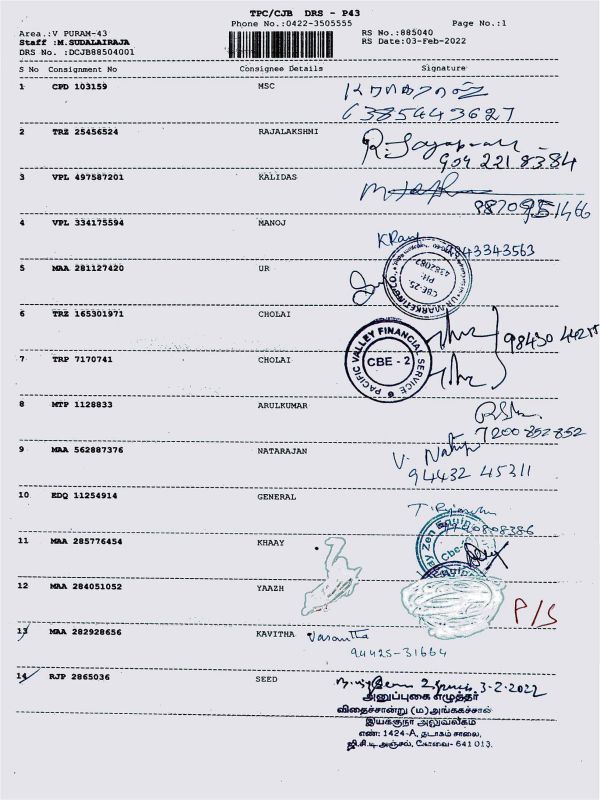 TPC/CJB DRS - P43
Phone No.:0422-3505555
Page No.:1
Area.:V PURAM-43
Staff :M.SUDALAIRAJA
DRS No. :DCJB88504001
RS No.:885040
RS Date:03-Feb-2022
S No Consignment No Consignee Details Signature
1 CPD 103159 MSC
6385443627
2 TRZ 25456524 RAJALAKSHMI
904 221 8384
3 VPL 497587201 KALIDAS
4 VPL 334175594 MANOJ
9843343563
5 MAA 281127420 UR
CBE-25.
6 TRZ 165301971 CHOLAI
PACIFIC VALLEY FINANCIAL SERVICE
CBE - 2
7 TRP 7170741 CHOLAI
8 MTP 1128833 ARULKUMAR
7200 852 852
9 MAA 562887376 NATARAJAN
V. Natrj
94432 45311
10 EDQ 11254914 GENERAL
11 MAA 285776454 KHAAY
12 MAA 284051052 YAAZH
P/S
13 MAA 282928656 KAVITHA Vasantha
94425-31664
14 RJP 2865036 SEED
3-2-2022
அனுப்புகை எழுத்தர்
விதைச்சான்று (ம) அங்ககச்சான்
இயக்குநா அலுவலகம்
எண்: 1424-A, தடாகம் சாலை,
ஜி.சி.டி அஞ்சல், கோவை- 641 013.